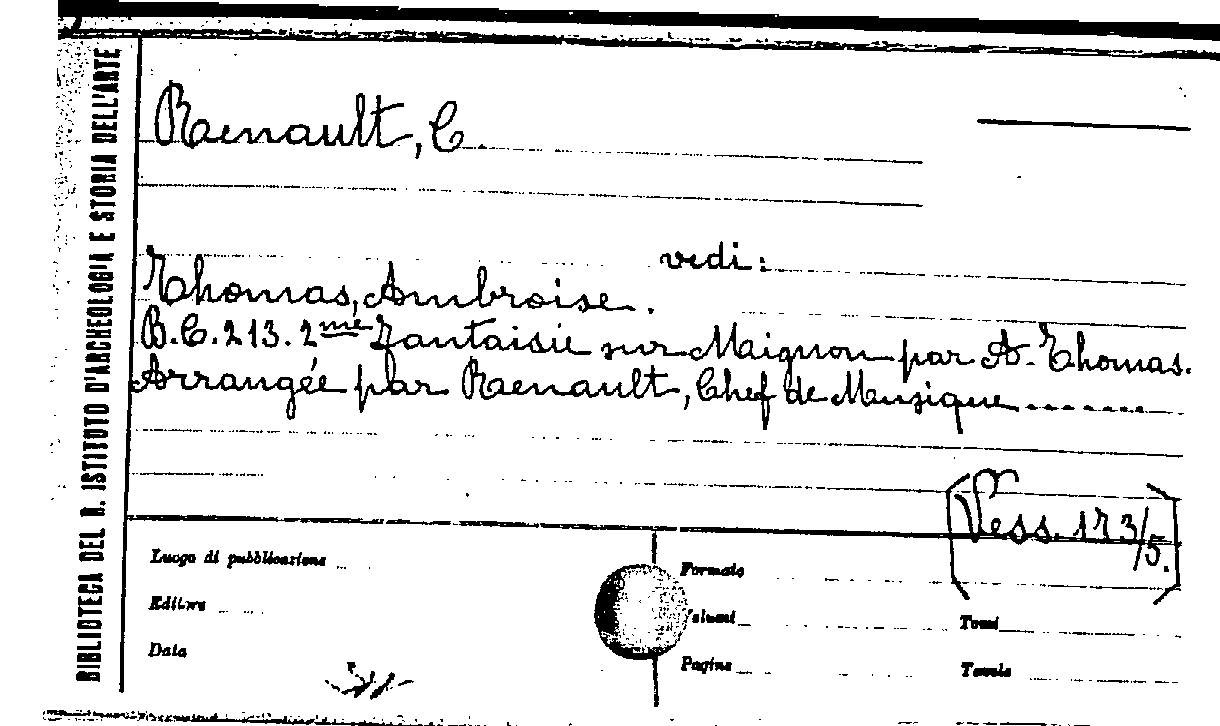 BIBLIOTECA DEL R. ISTITUTO D'ARCHEOLOGIA E STORIA DELL'ARTE
Renault, C.
vedi:
Thomas, Ambroise.
B.C. 213. 2me Fantaisie sur Maignon par A. Thomas.
Arrangée par Renault, Chef de Musique........
[Vess. 173/5.]
Luogo di pubblicazione
Editore
Data
Formato
Volumi
Pagine
Tomi
Tavole